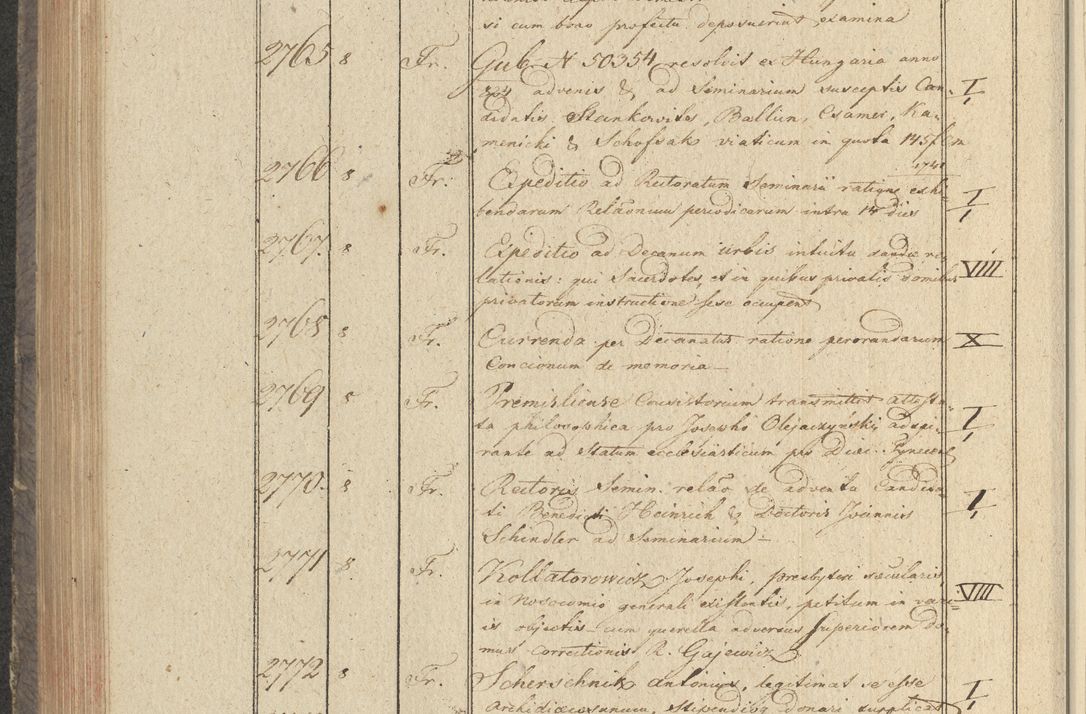 si cum bono profectu deposuerint examina
2765 8 Fr. Gub. N 50354 resolvit ex Hungaria anno
advenis & ad Seminarium susceptis Can- I
didatis Stankovites, Ballun, Csamer, Ka-
menicki & Schofsak viaticum in quota 145 f
2766 8 Fr. Expeditio ad Rectoratum Seminarii ratione exhi- I
bendarum Relãonum periodicarum intra 14 dies
2767. 8 Fr. Expeditio ad Decanum urbis intuitu dandæ re-
lationis: qui Sacerdotes, et in quibus privatis domibus VIII
privatorum instructione sese occupent
2768 8 Fr. Currenda per Decanatus ratione perorandarum X
Concionum de memoria
2769 8 Fr. Premisliense Consistorium transmittit attesta-
ta philosophica pro Josepho Olejaczyński, adspi- I
rante ad Statum ecclesiasticum pro Diæc. Tyneciens
2770. 8 Fr. Rectoris Semin. relão de adventu Candida-
ti Benedicti Heinrich & Doctoris Joannis I
Schindler ad Seminarium
2771 8 Fr. Kollatorowicz Josephi, presbyteri sæcularis
in Nosocomio generali existentis, petitum in vari- VIII
is objectis cum querella adversus superiorem do-
mus Correctionis R. Gajewicz
2772 8 Fr. Scherschnik antonius, legitimat se esse I
Archidiœcesanum, Stipendium donari supplicat